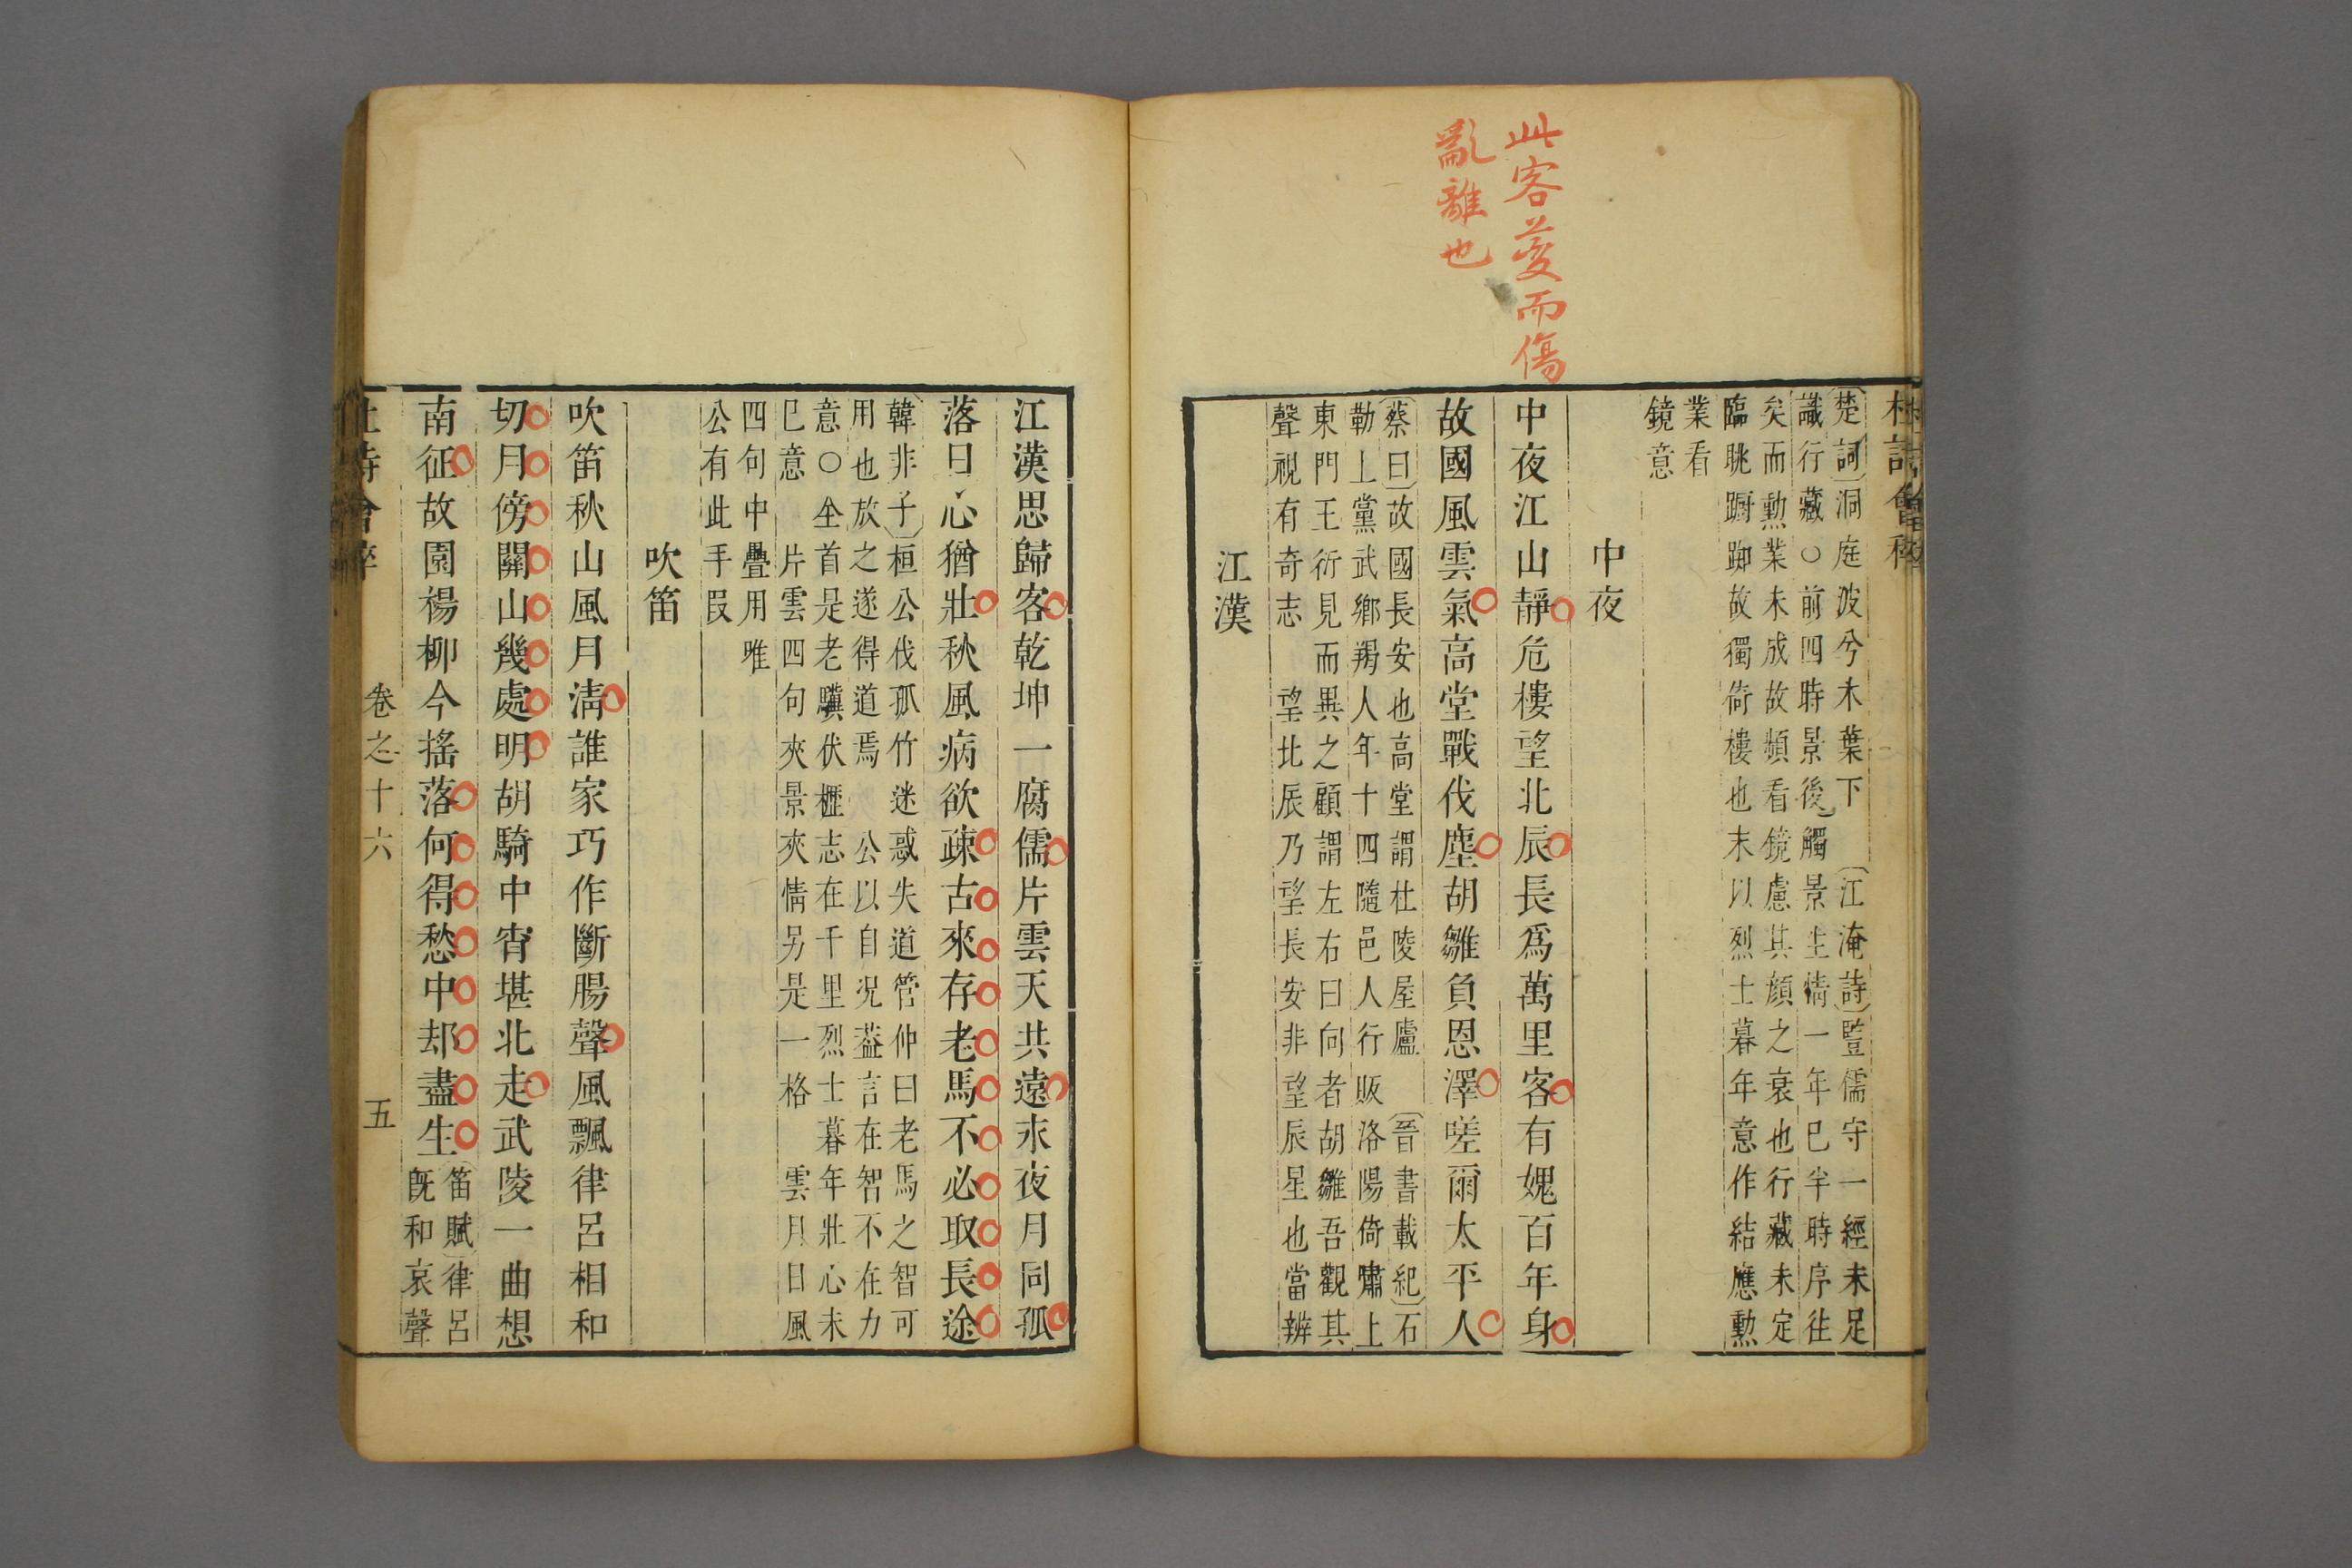 此客夔而傷
亂離也
杜詩會稡
楚詞洞庭波兮木葉下 江淹詩豎儒守一經未足
識行藏○前四時景後觸景生情一年已半時序往
矣而勲業未成故頻看鏡慮其顔之衰也行藏未定
臨眺躊踟故獨倚樓也末以烈士暮年意作結應勲
業看
鏡意
中夜
中夜江山靜危樓望北辰長爲萬里客有媿百年身
故國風雲氣高堂戰伐塵胡雛負恩澤嗟爾太平人
蔡曰故國長安也高堂謂杜陵屋廬 晉書載紀石
勒上黨武鄉羯人年十四隨邑人行販洛陽倚嘯上
東門王衍見而異之顧謂左右曰向者胡雛吾觀其
聲視有奇志 望北辰乃望長安非望辰星也當辨
江漢
江漢思歸客乾坤一腐儒片雲天共遠永夜月同孤
落日心猶壯秋風病欲疎古來存老馬不必取長途
韓非子桓公伐孤竹迷惑失道管仲曰老馬之智可
用也放之遂得道焉 公以自况葢言在智不在力
意○全首是老驥伏櫪志在千里烈士暮年壯心未
已意 片雲四句夾景夾情另是一格 雲月日風
四句中疊用唯
公有此手叚
吹笛
吹笛秋山風月淸誰家巧作斷腸聲風飄律呂相和
切月傍關山幾處明胡騎中宵堪北走武陵一曲想
南征故園楊柳今搖落何得愁中却盡生
笛賦律呂
旣和哀聲
杜詩會稡 卷之十六 五